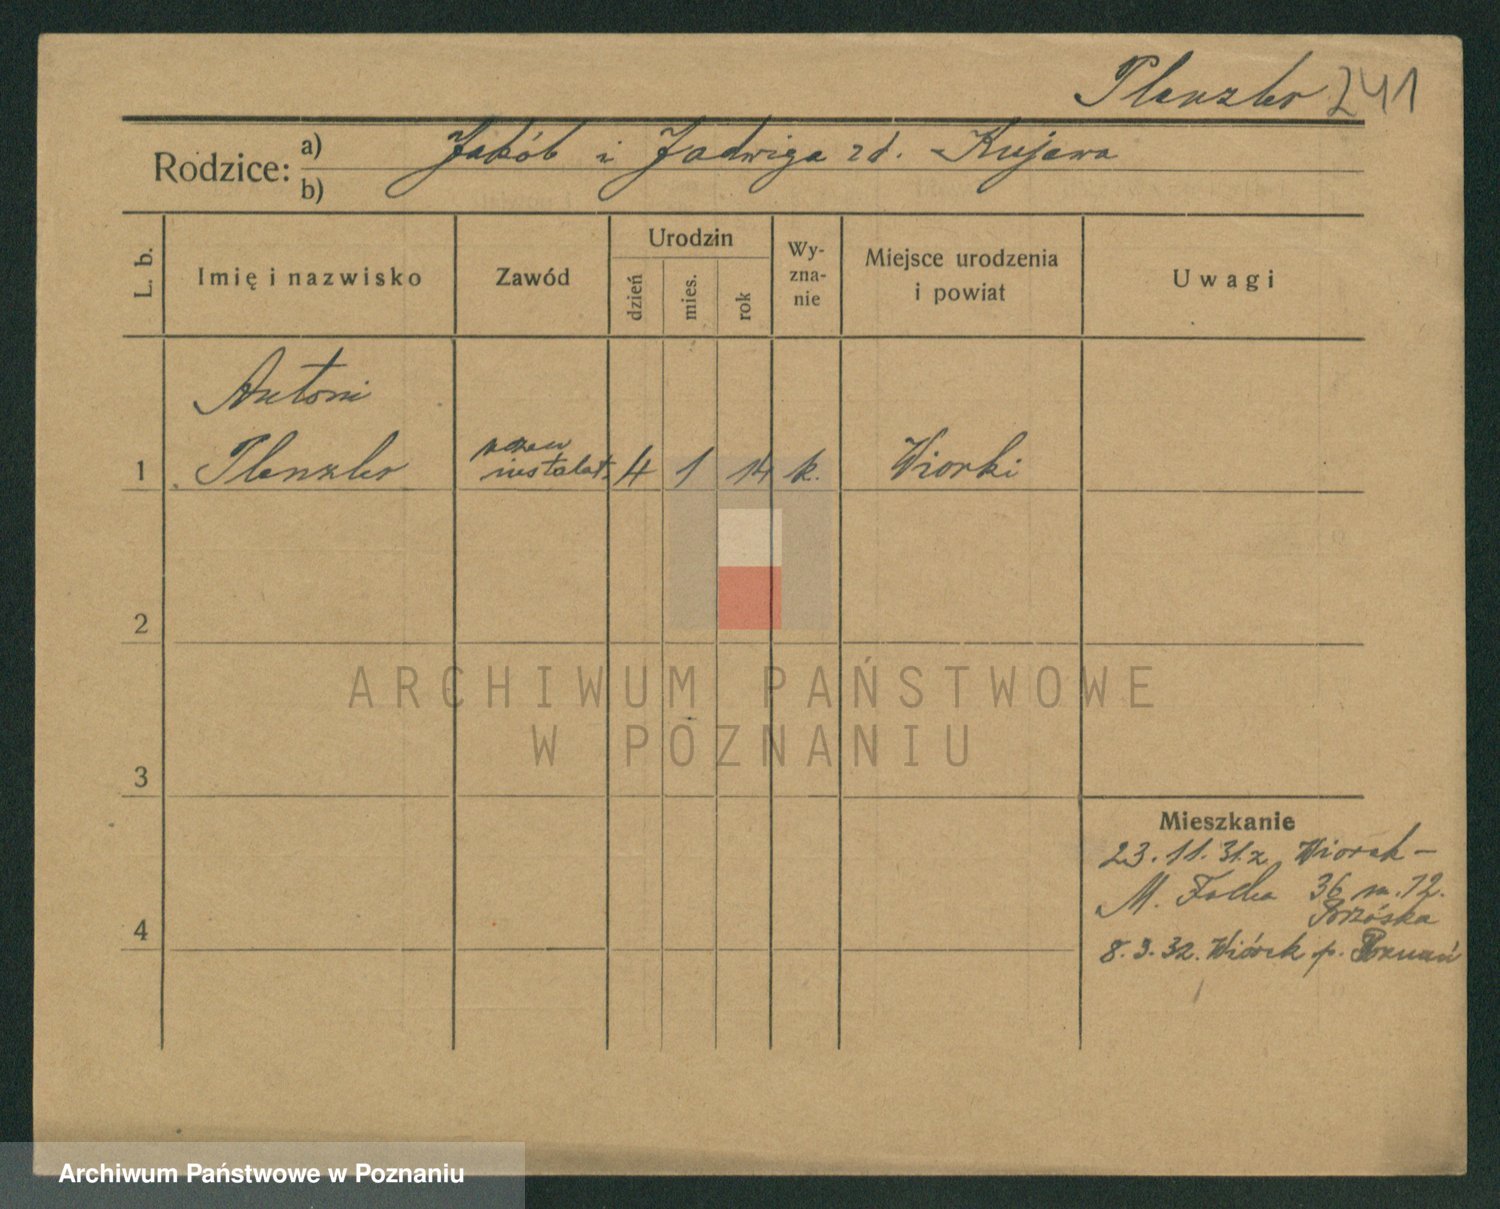 Plenzler 241
Rodzice: a) Jakób i Jadwiga zd. Kujawa
b)
L. b.
Imię i nazwisko
Zawód
Urodzin
dzień
mies.
rok
Wy-
zna-
nie
Miejsce urodzenia
i powiat
Uwagi
Antoni
1 Plenzler uczeń instalat. 4 1 14 k. Wiorki
2
3
4
Mieszkanie
23.11.31 z Wiorek –
M. Focha 36 m. 12.
Brzóska
8.9.32. Wiórek p. Poznań
ARCHIWUM PAŃSTWOWE
W POZNANIU
Archiwum Państwowe w Poznaniu